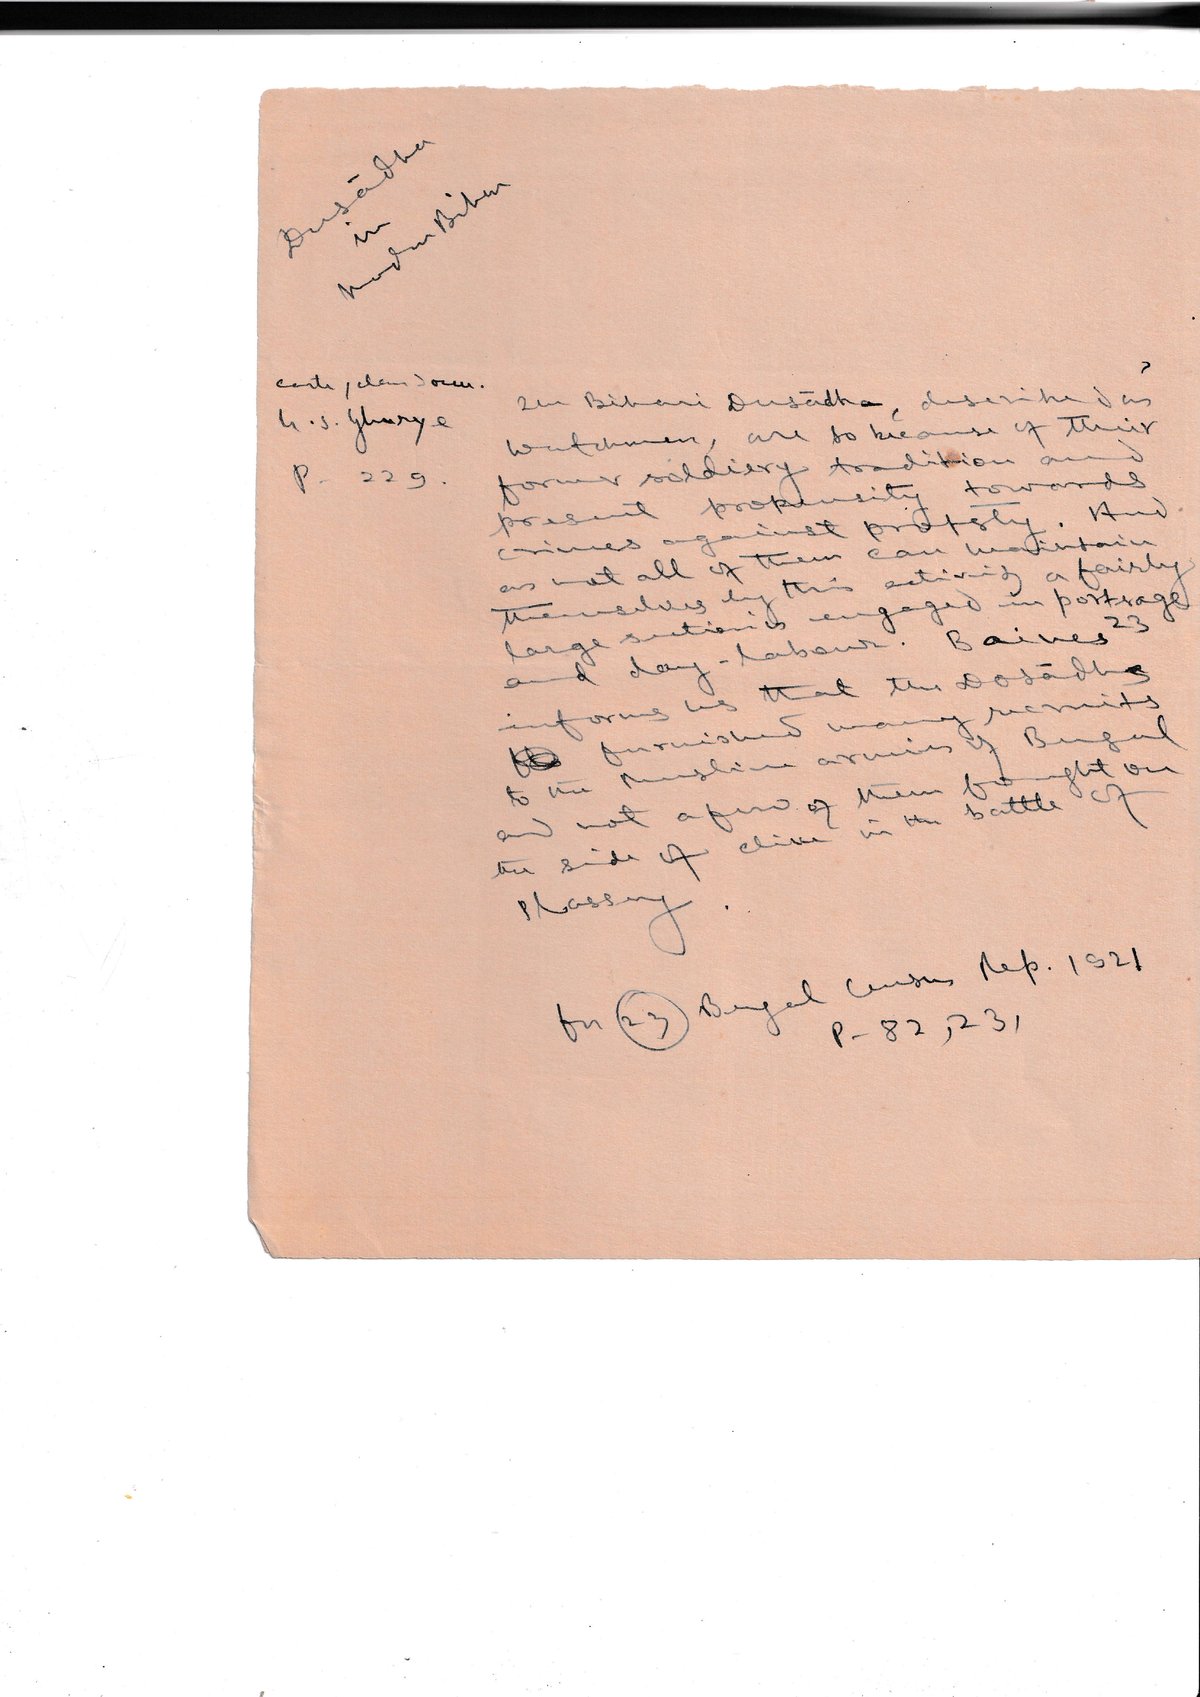 Dusādha
in
Modern Bihar
Caste, Class & Occu.
G. S. Ghurye
P - 229.
The Bihari Dusādha, described as
watchmen, are so because of their
former soldiery tradition and
present propensity towards
crimes against property. And
as not all of them can maintain
themselves by this activity a fairly
large section is engaged in portrage
and day-labour. Baines 23
informs us that the Dosādhs
furnished many recruits
to the Muslim armies of Bengal
and not a few of them fought on
the side of Clive in the battle of
Plassey.
for 23 Bengal Census Rep. 1921
P - 82, 231